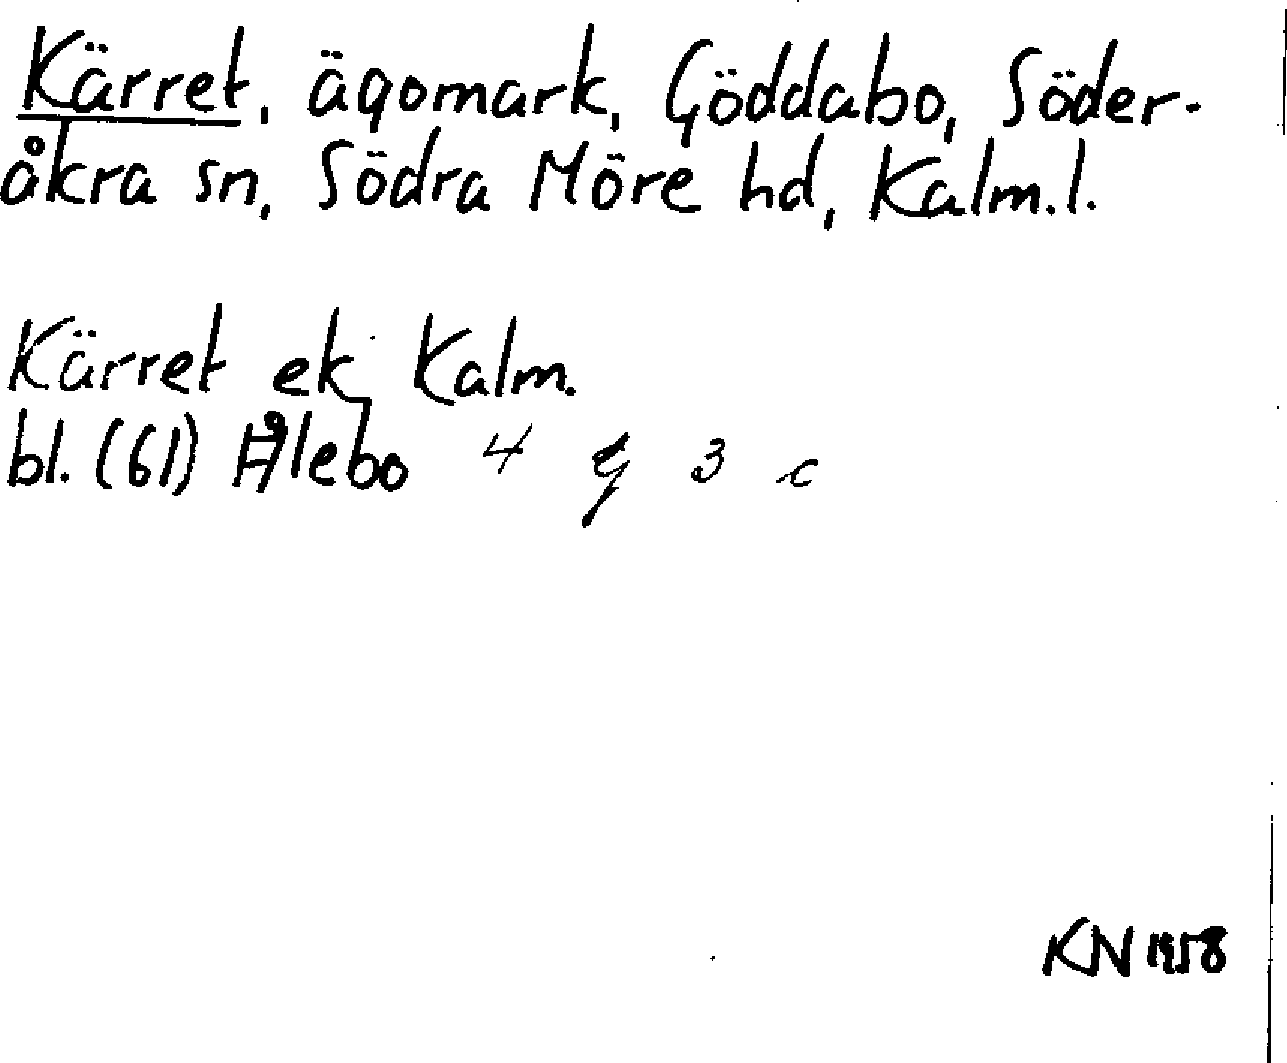 Kärret, ägomark, Göddabo, Söder-
åkra sn, Södra Möre hd, Kalm.l.
Kärret ek Kalm.
bl. (61) Ålebo 4 g 3 c
KN 1958